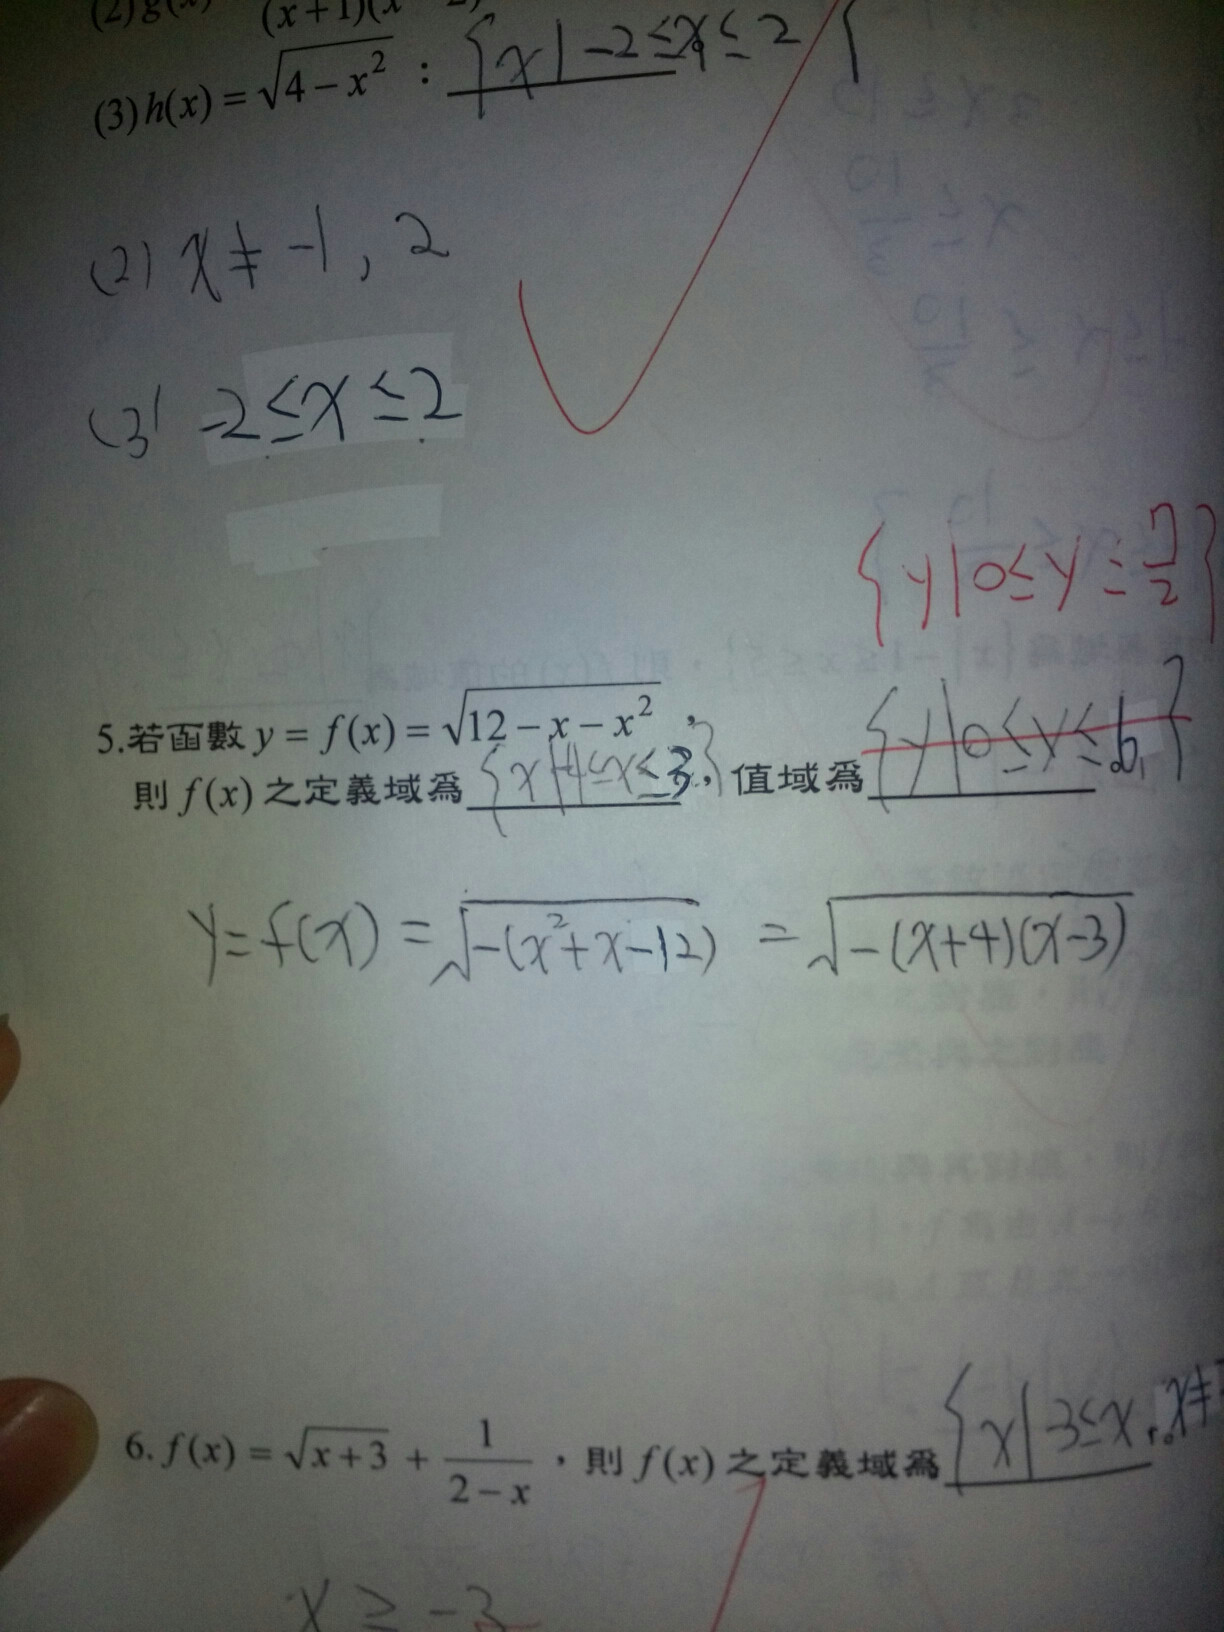 (2) g(x) (x+1)(x
(3) h(x) = √(4-x²) : {x|-2≤x≤2
(2) x≠-1, 2
(3) -2≤x≤2
{y|0≤y≤7/2}
5.若函數 y = f(x) = √(12-x-x²),
則 f(x) 之定義域為 {x|-4≤x≤3},值域為 {y|0≤y≤6}
y=f(x) = √(-(x²+x-12)) = √(-(x+4)(x-3))
6. f(x) = √(x+3) + 1/(2-x),則 f(x) 之定義域為 {x|-3≤x, x≠
x ≥ -3